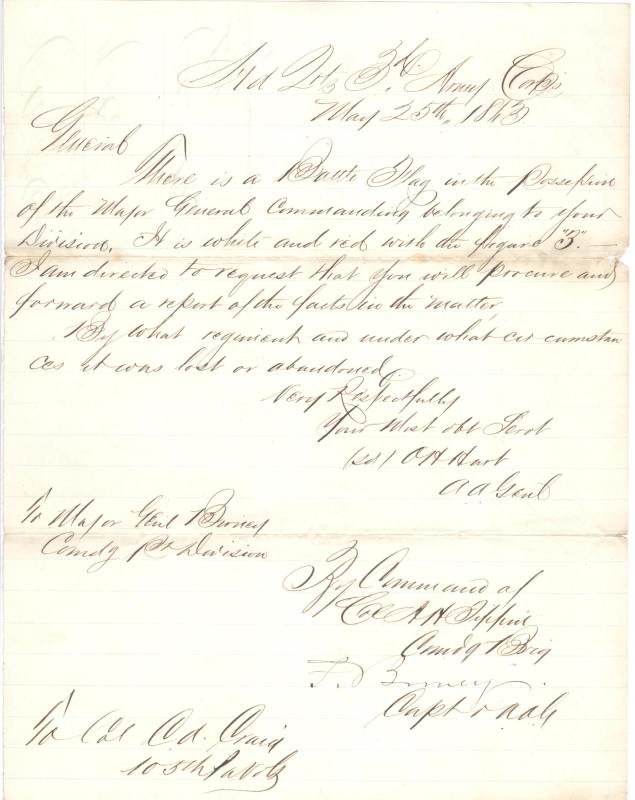 Hd Qts 3d. Army Corps
May 25th, 1863
General
There is a Battle Flag in the possession
of the Major General Commanding belonging to your
Division. It is white and red with the figure "3". —
I am directed to request that you will procure and
forward a report of the facts in the matter,
By what regiment and under what circumstan
ces it was lost or abandoned.
Very Respectfully
Your Most obt Servt
(sd) O H Hart
A A Genl
To Major Genl Birney
Comdg 1st Division
By Command of
Col A H Tippin
Comdg Brig
F. Birney
Capt & AAG
To Col C. A. Craig
105th Pa Vols